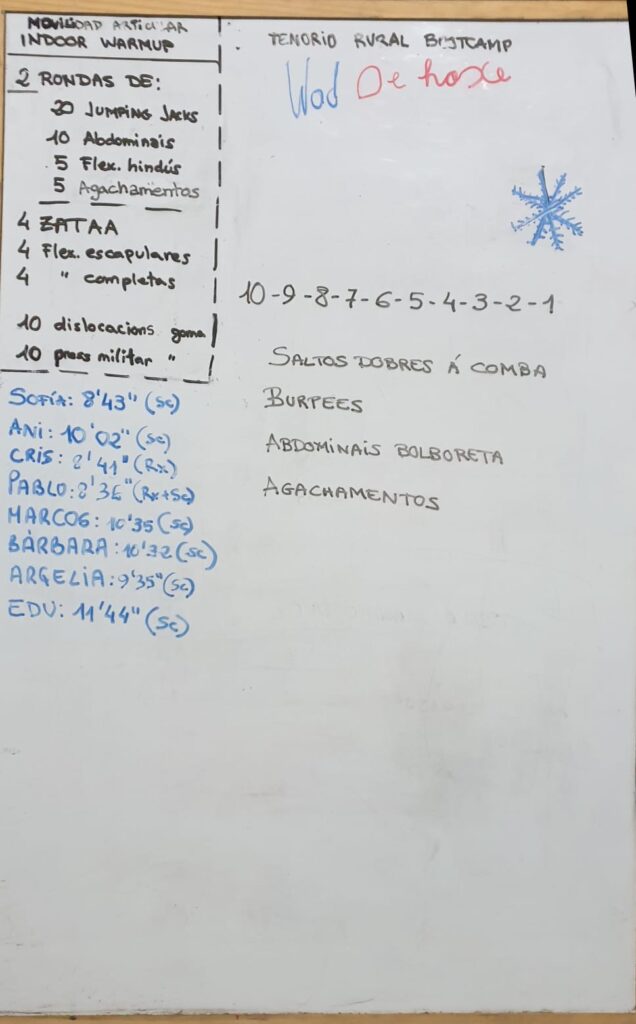 MOVILIDAD ARTICULAR
INDOOR WARMUP
2 RONDAS DE:
20 JUMPING JACKS
10 Abdominais
5 Flex. hindús
5 Agachamentos
4 ZATAA
4 Flex. escapulares
4 " completas
10 dislocacions goma
10 press militar "
SOFÍA: 8'43" (Sc)
ANI: 10'02" (Sc)
CRIS: 8'41" (Rx)
PABLO: 8'35" (Rx+Sc)
MARCOS: 10'35 (Sc)
BÁRBARA: 10'32 (Sc)
ARGELIA: 9'35" (Sc)
EDU: 11'44" (Sc)
TENORIO RURAL BESTCAMP
Wod De hoxe
10-9-8-7-6-5-4-3-2-1
SALTOS DOBRES Á COMBA
BURPEES
ABDOMINAIS BOLBORETA
AGACHAMENTOS